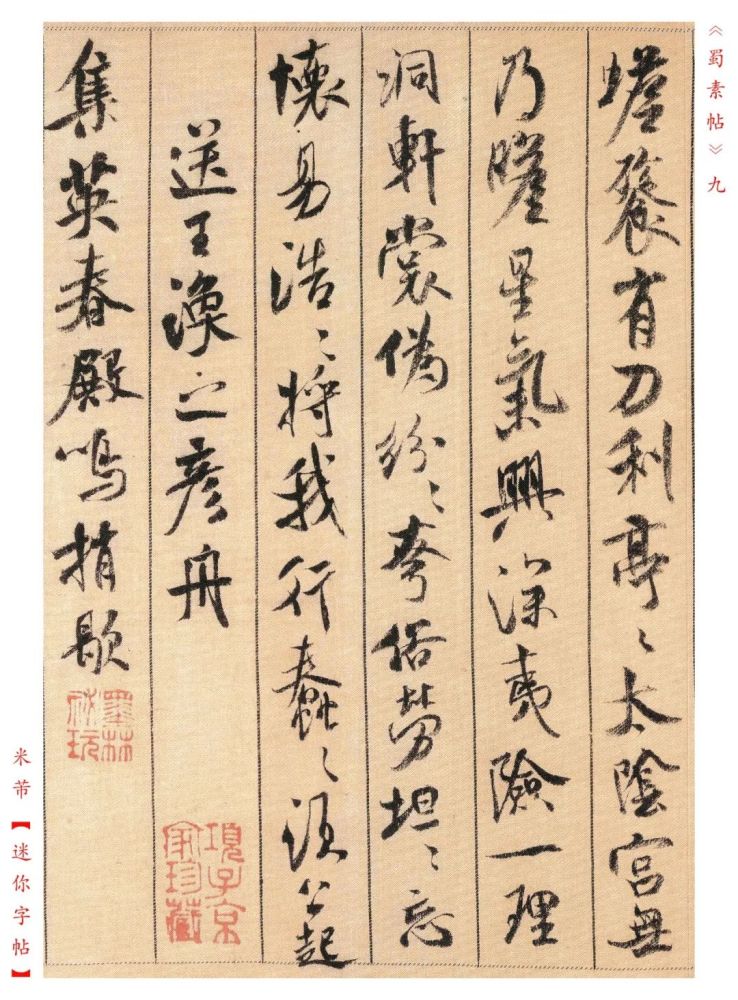 《蜀素帖》九
蟾餮有刀利亭〻太陰宮無
乃瞻星氣興深夷險一理
洞軒裳偽紛〻夸俗勞坦〻忘
懷易浩〻將我行蠢〻須公起
送王渙之彥舟
項子京家珍藏
集英春殿鳴捎歇
墨林祕玩
米芾【迷你字帖】